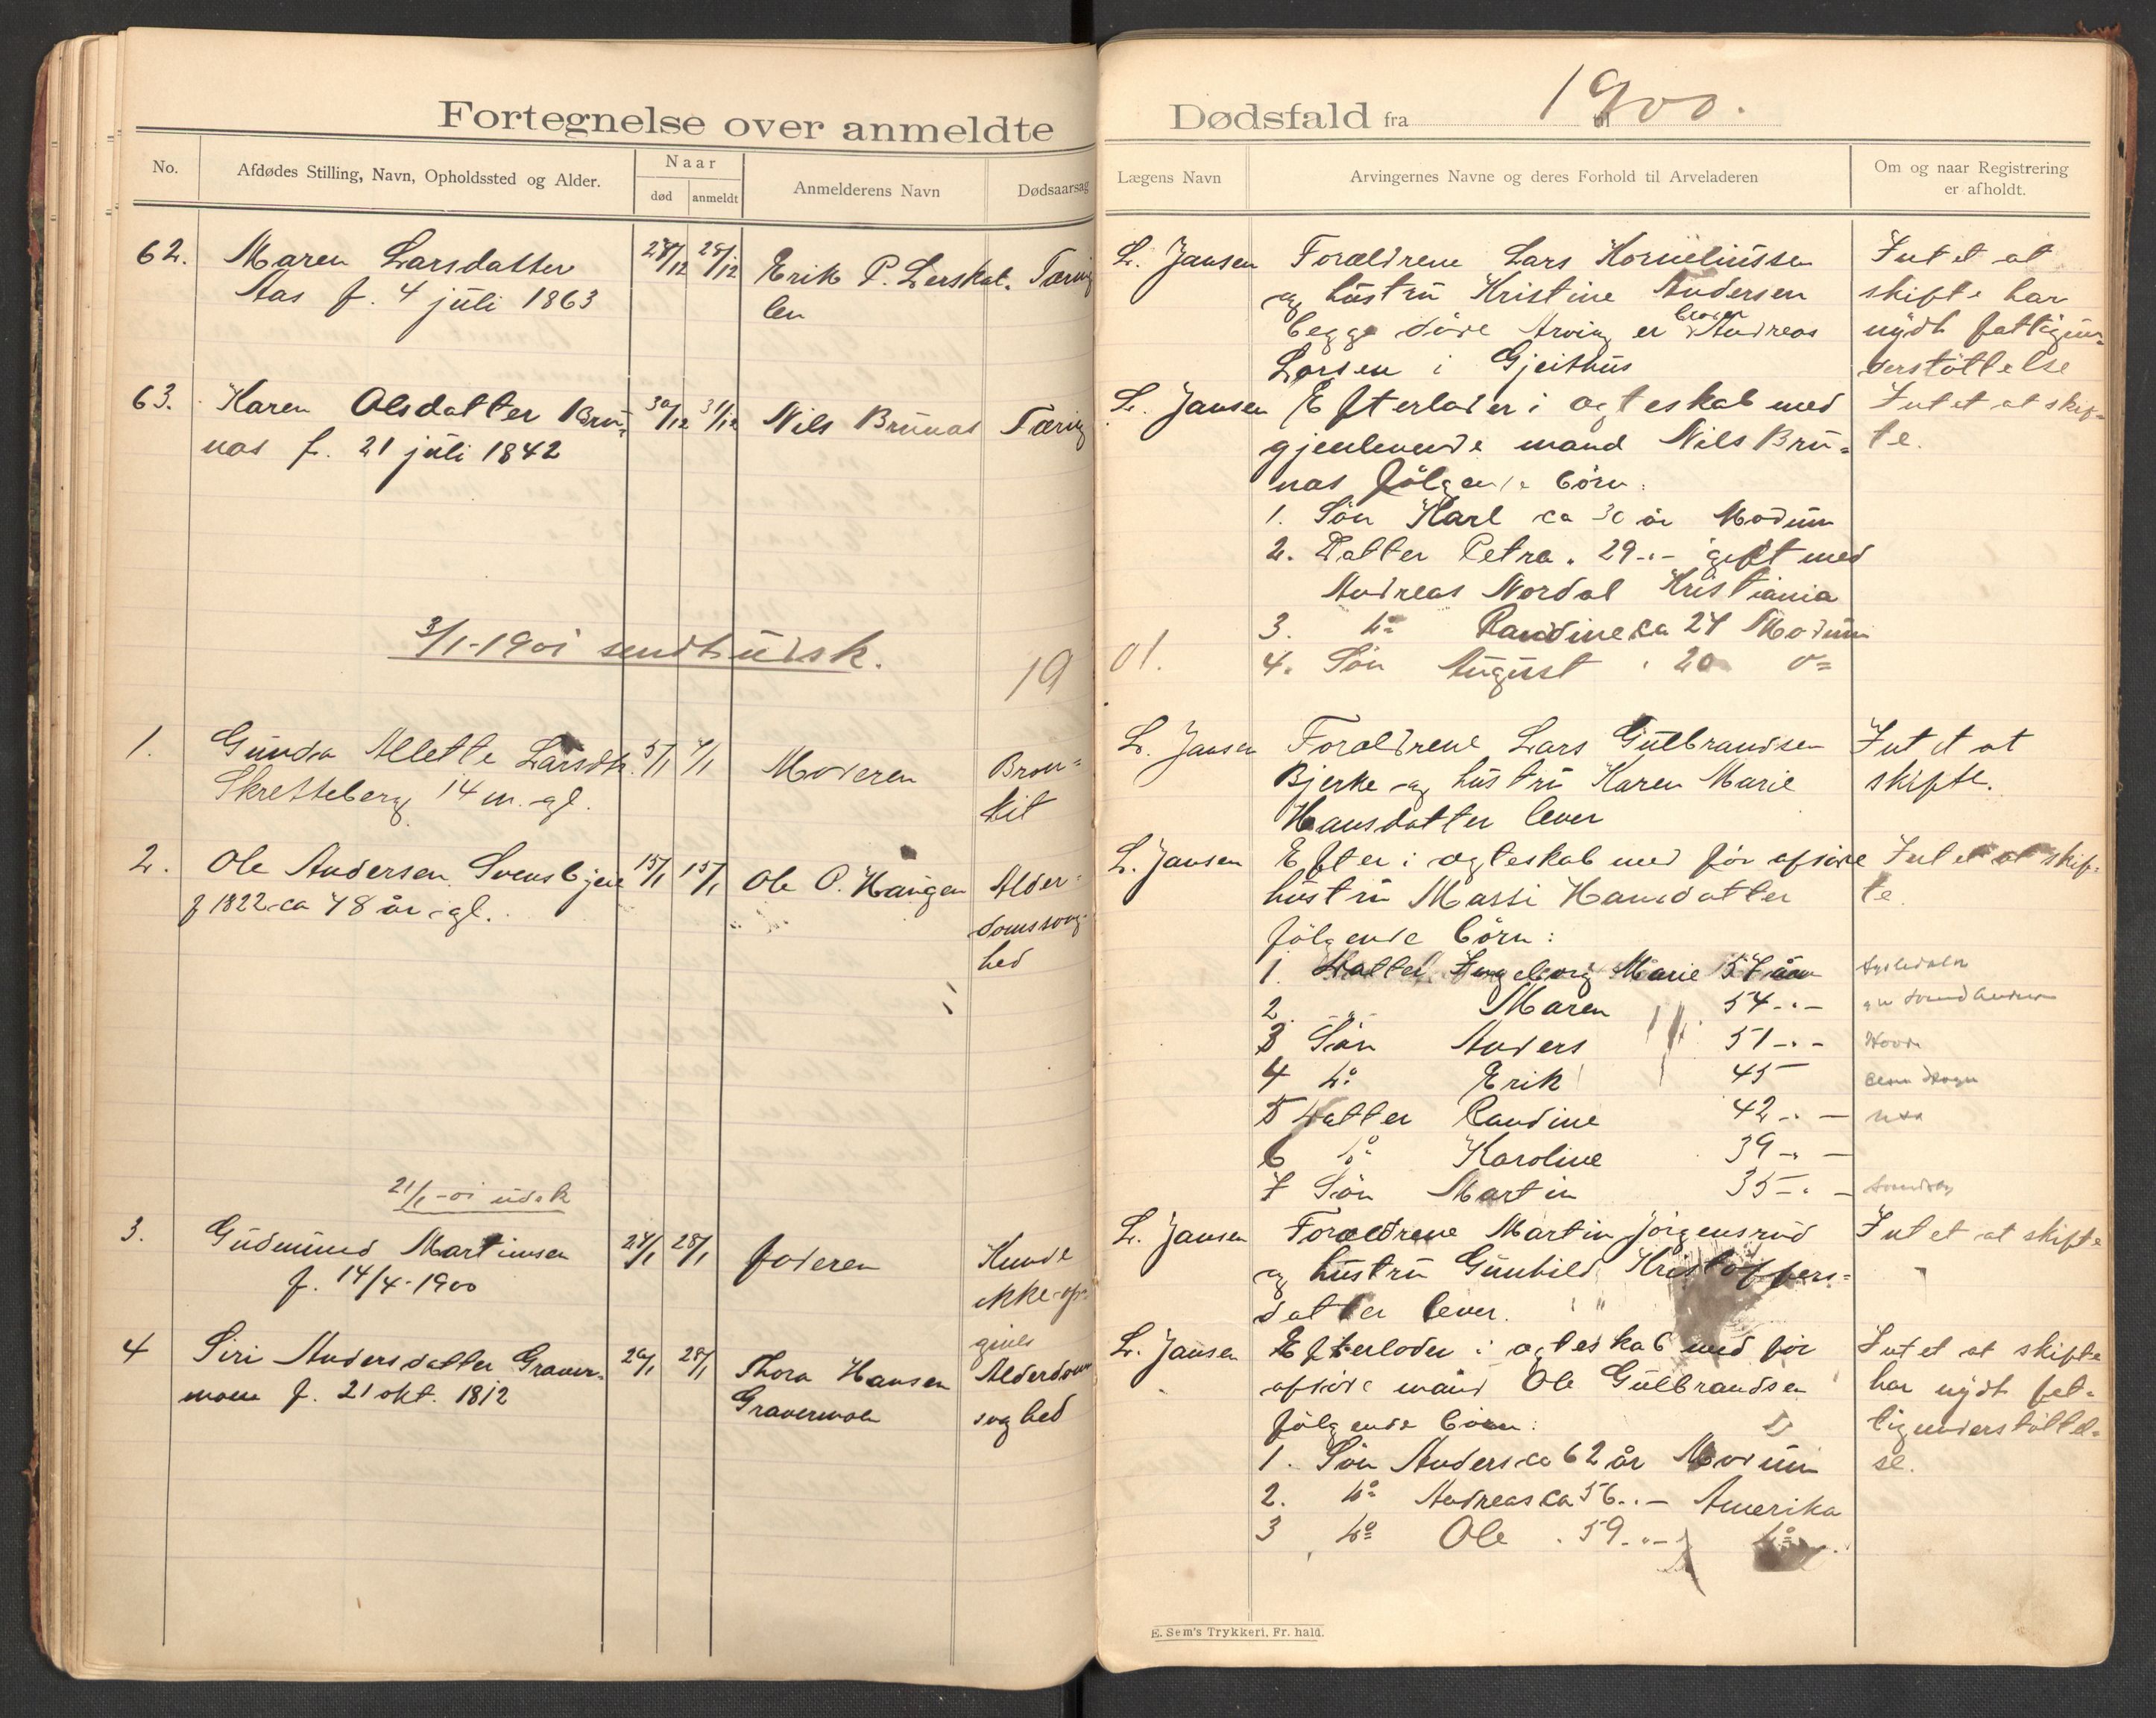 Fortegnelse over anmeldte
No.
Afdødes Stilling, Navn, Opholdssted og Alder.
Naar
død
anmeldt
Anmelderens Navn
Dødsaarsag
62.
Maren Larsdatter
Aas f. 4 juli 1863
28/12
Erik P. Lerskal-
len
Tæring
63.
Karen Olsdatter Bru-
nas f. 21 juli 1842
30/12
31/12
Nils Brunas
Tæring
3/1-1901 sendt udsk.
19
1.
Gunda Alette Larsdtr.
Skretteberg 14 m. gl.
5/1
7/1
Moderen
Bron-
kit
2.
Ole Andersen Svensbjere
f 1822 ca 78 år gl.
15/1
15/1
Ole P. Haugen
Alder-
domssvag-
hed
21/1-01 udsk
3.
Gudmund Martinsen
f. 14/4-1900
24/1
28/1
faderen
Kunde
ikke op-
gives
4
Siri Andersdatter Graver-
moen f. 21 okt. 1812
26/1
28/1
Thora Hansen
Gravermoen
Alderdoms
svaghed
Dødsfald fra 1900. til
Lægens Navn
Arvingernes Navne og deres Forhold til Arveladeren
Om og naar Registrering
er afholdt.
L. Jansen
Forældrene Lars Korneliussen
og hustru Kristine Andersen
begge døde Arving er broren Andreas
Larsen i Gjeithus
Intet at
skifte har
nydt fattigun-
derstöttelse
L. Jansen
Efterlader i ægteskab med
gjenlevende mand Nils Bru-
nas følgende börn:
1. Sön Karl ca 30 år Modum
2. Datter Petra " 29 -"- gift med
Andreas Nordal Kristiania
3. do Randine ca 24 Modum
4. Sön August " 20 do
Intet at skif-
te.
01.
L. Jansen
Forældrene Lars Gulbrandsen
Bjerke og hustru Karen Marie
Hansdatter lever
Intet at
skifte.
L. Jansen
Efter i ægteskab med før afdøde
hustru Massi Hansdatter
følgende börn:
1 Datter Ingeborg Marie 57 år
2. " Maren 54 -"-
3 Sön Anders 51 -"-
4 do Erik 45
5 Datter Randine 42 -"-
6 do Karoline 39 -"-
7 Sön Martin 35 -"-
Intet at skif-
te.
L. Jansen
Forældrene Martin Jörgensrud
og hustru Gunhild Kristoffers-
datter lever.
Intet at skifte
L. Jansen
Efterlader i ægteskab med før
afdøde mand Ole Gulbrandsen
følgende börn:
1. Sön Anders ca 62 år Modum
2. do Andreas ca 56 -"- Amerika
3 do Ole " 59 -"- do
Intet at skifte
har nydt fat-
tigunderstøttel-
se.
E. Sem's Trykkeri, Fr. hald.